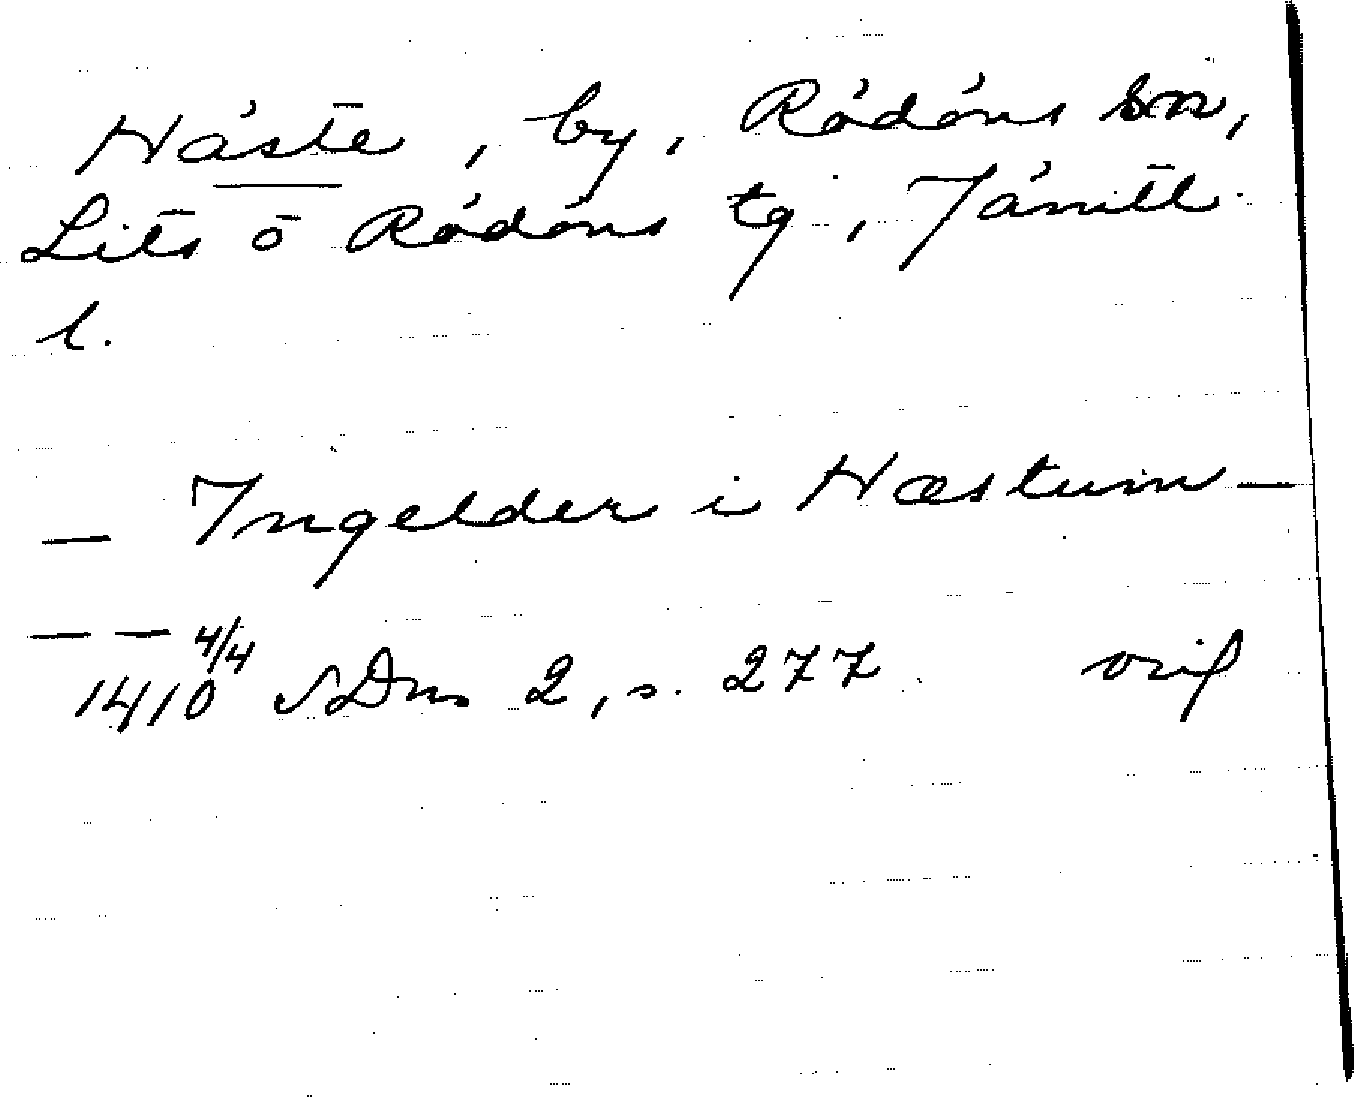 Häste, by, Rödöns sn,
Lits o Rödöns tg, Jämtl.
l.
— Ingelder i Hæstum —
— — 4/4
1410 SDns 2, s. 277 orig